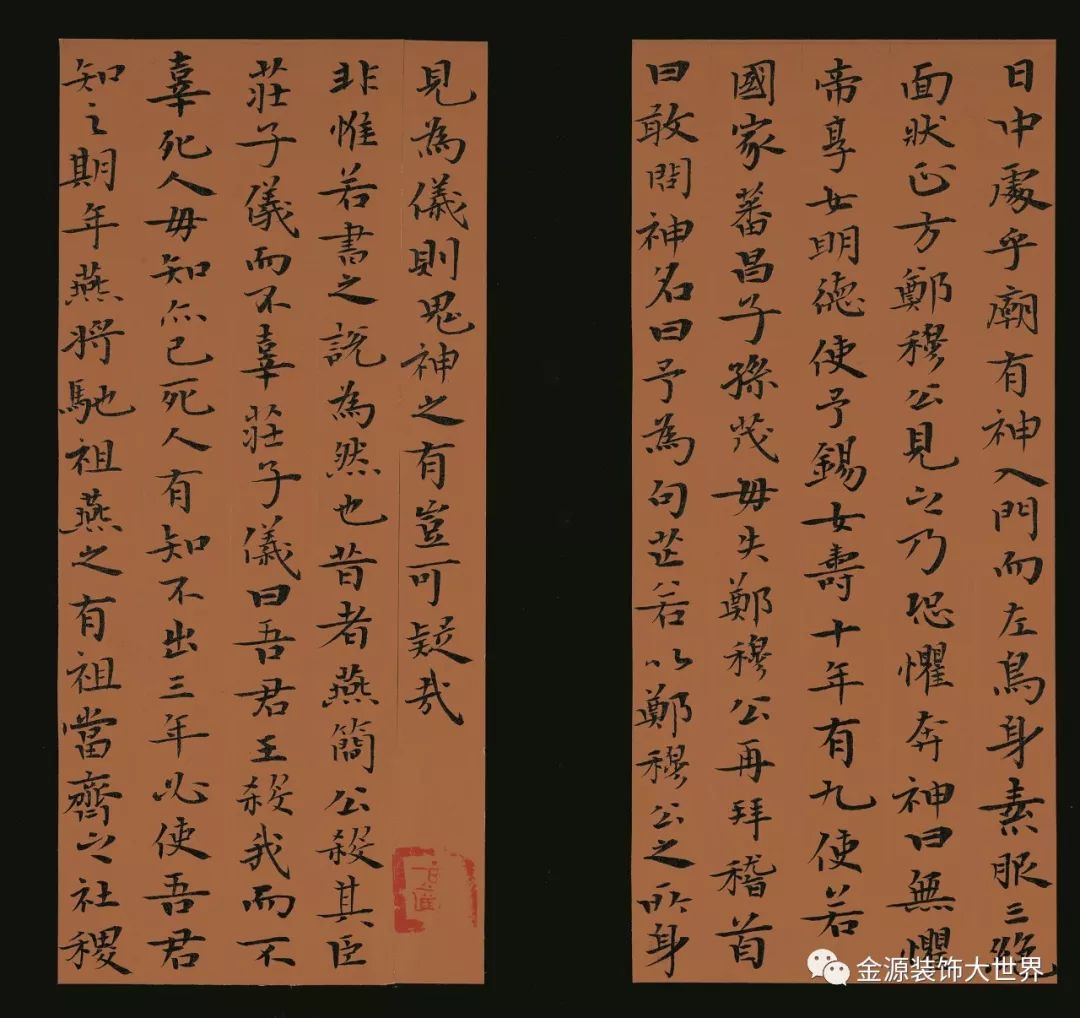 日中處乎廟有神入門而左鳥身素服三絕
面狀正方鄭穆公見之乃恐懼奔神曰無懼
帝享女明德使予錫女壽十年有九使若
國家蕃昌子孫茂毋失鄭穆公再拜稽首
曰敢問神名曰予為句芒若以鄭穆公之所身
見為儀則鬼神之有豈可疑哉
非惟若書之說為然也昔者燕簡公殺其臣
莊子儀而不辜莊子儀曰吾君王殺我而不
辜死人毋知亦已死人有知不出三年必使吾君
知之期年燕將馳祖燕之有祖當齊之社稷
金源装饰大世界